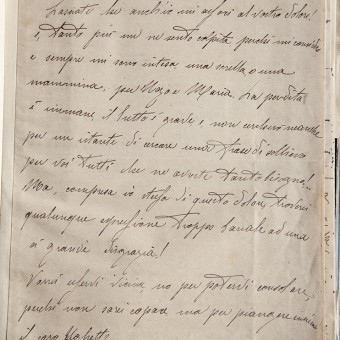 Lasciate che anch'io mi associ al vostro dolore!
e, tanto più me ne sento colpita, perché mi considero
e sempre mi sono intesa, una sorella, o una
mammina, per Ugo e Maria. La perdita
è immane, il lutto è grave, e non crederei neanche
per un istante di cercare una frase di sollievo
per voi tutti che ne avete tanto bisogno!..
Ma, compresa io stessa di questo dolore, troverei
qualunque espressione troppo banale ad una
sì grande disgrazia!
Vorrei esservi vicina, no per potervi consolare,
perché non sarei capace ma per piangere insieme
Il caro Ughetto